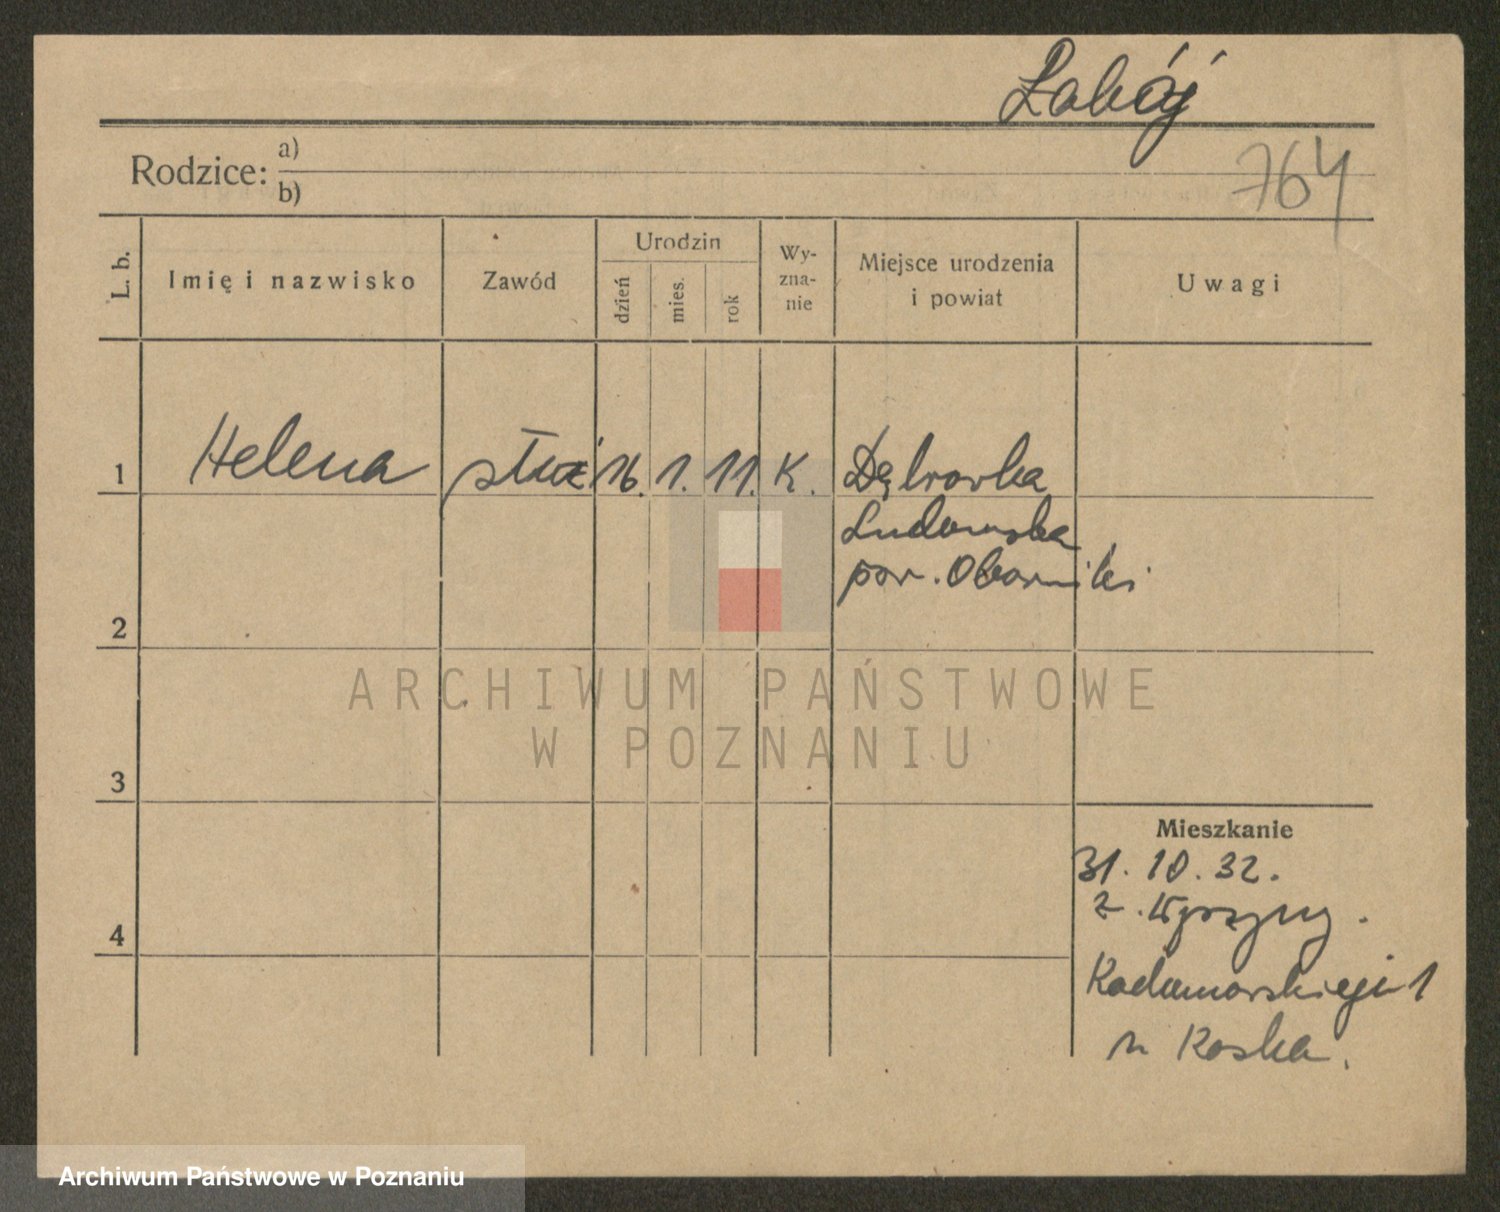 Łabój
764
Rodzice: a)
b)
L. b.
Imię i nazwisko
Zawód
Urodzin
dzień
mies.
rok
Wy-
zna-
nie
Miejsce urodzenia
i powiat
Uwagi
1 Helena służ 16. 1. 11. K. Dąbrowka
Ludomska
pow. Oborniki
2
3
4
Mieszkanie
31. 10. 32.
z. Wyszyny.
1
u Koska.
ARCHIWUM PAŃSTWOWE
W POZNANIU
Archiwum Państwowe w Poznaniu